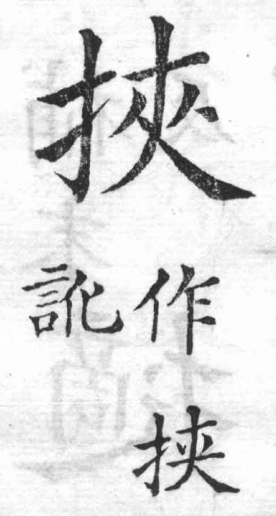 挾
作挟
訛